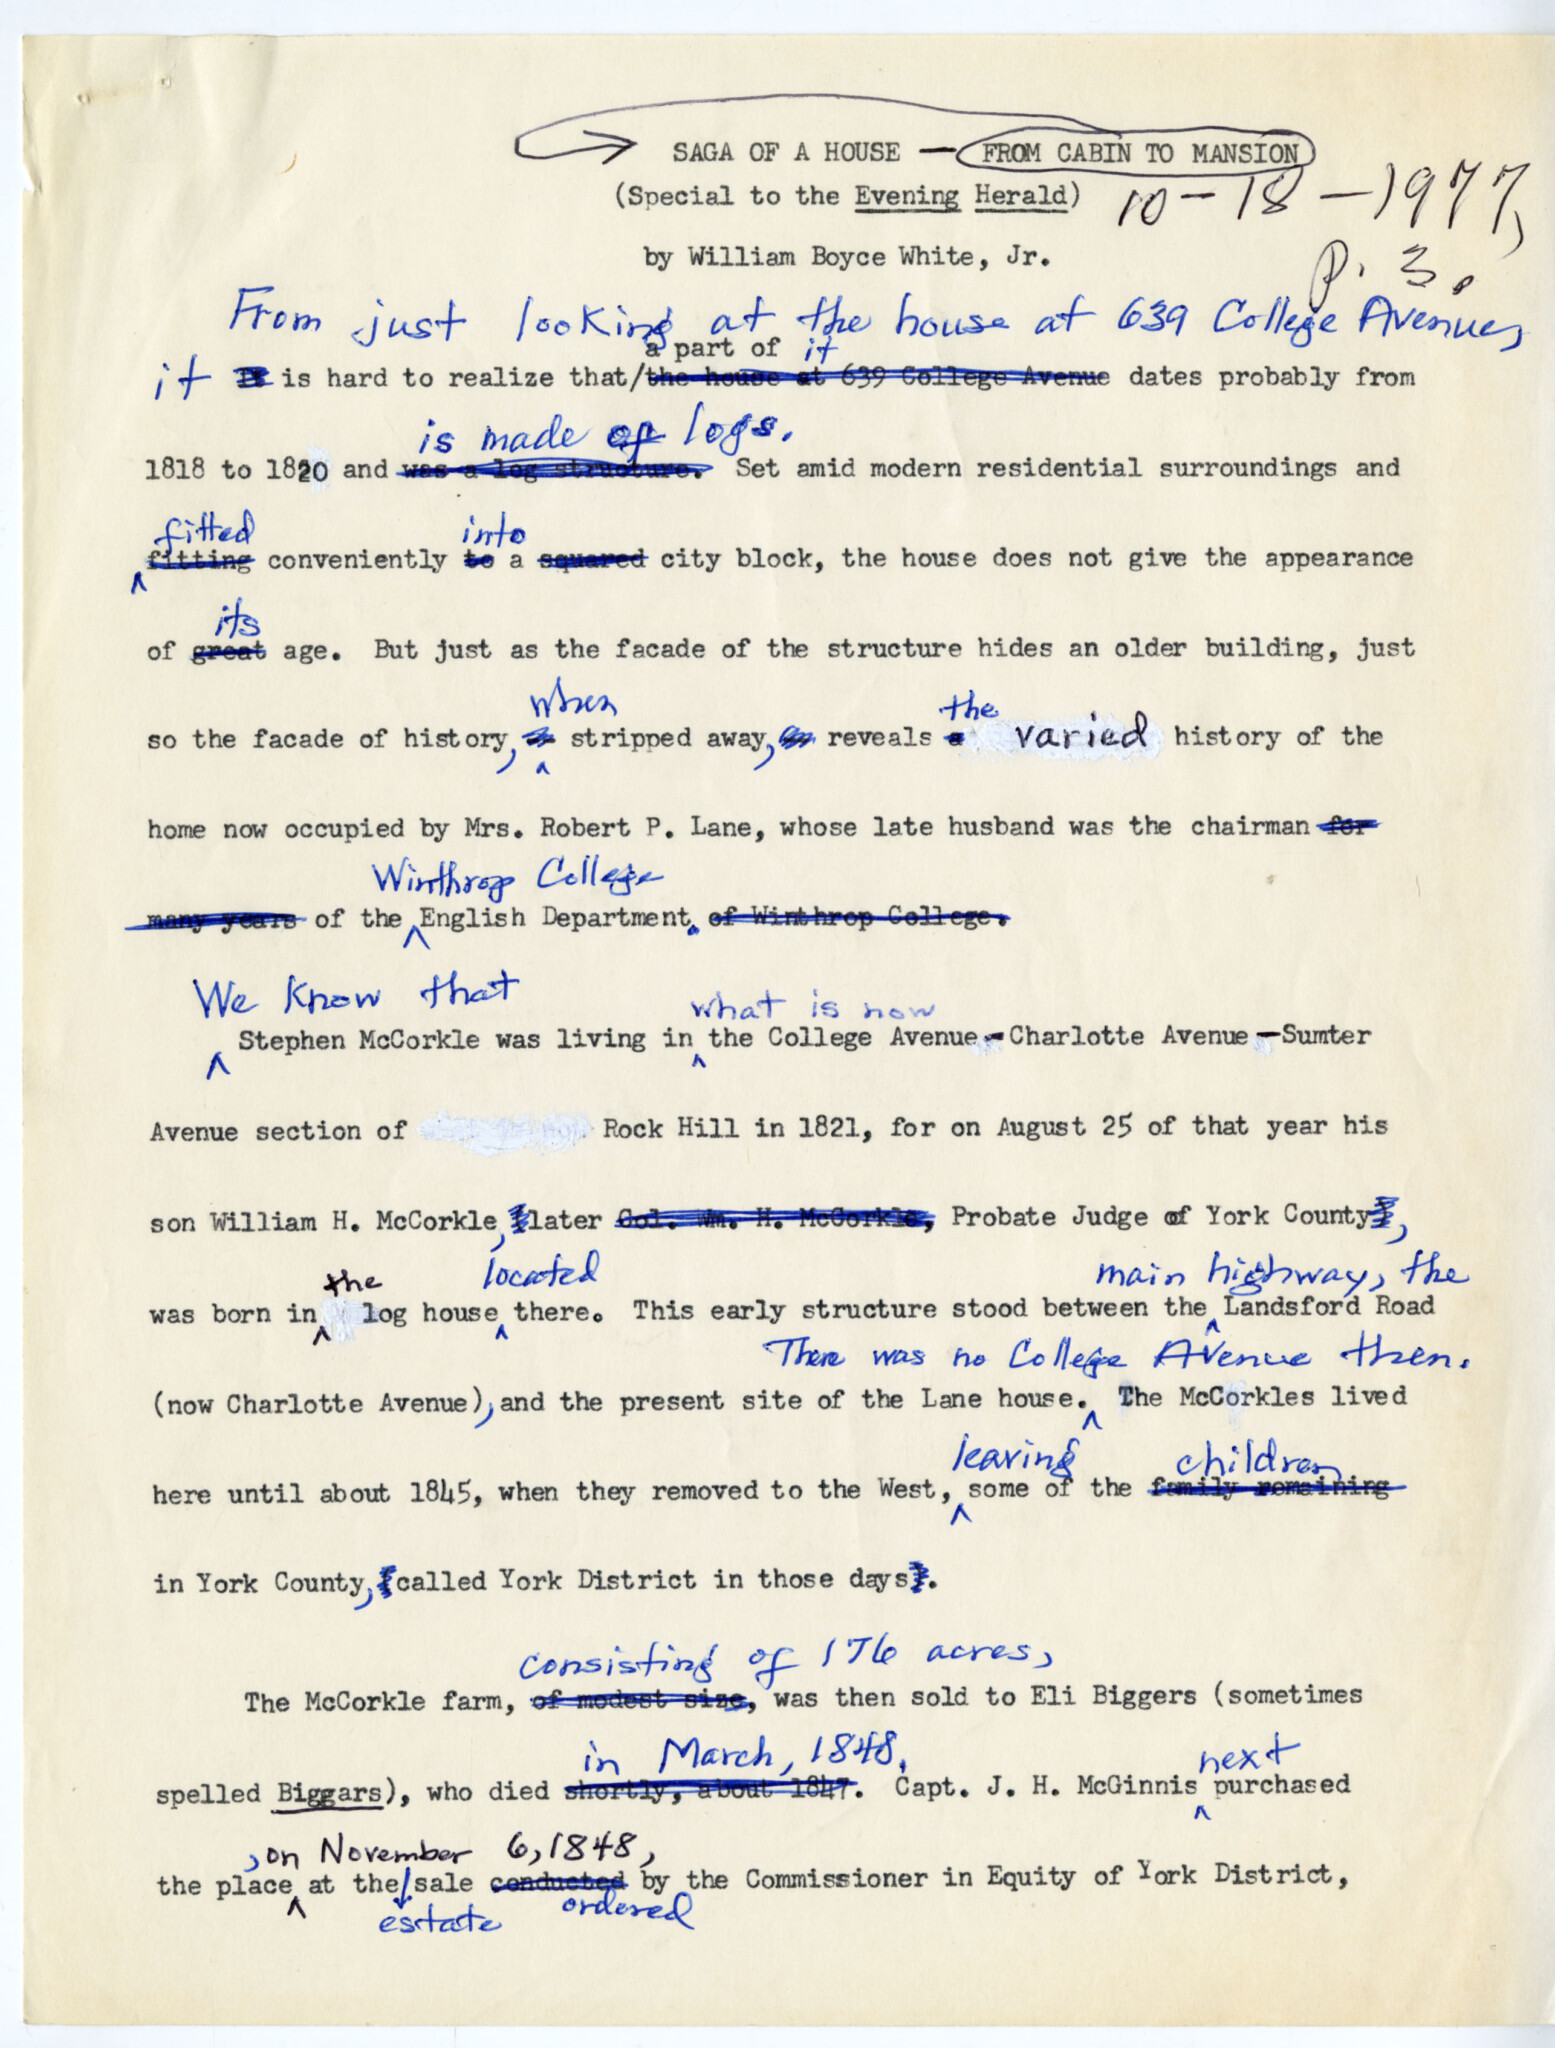 SAGA OF A HOUSE — FROM CABIN TO MANSION
(Special to the Evening Herald)
10-18-1977,
by William Boyce White, Jr.
p. 3.
From just looking at the house at 639 College Avenue,
a part of it
it It is hard to realize that/the house at 639 College Avenue dates probably from
is made of logs.
1818 to 1820 and was a log structure. Set amid modern residential surroundings and
fitted into
fitting conveniently to a squared city block, the house does not give the appearance
its
of great age. But just as the facade of the structure hides an older building, just
when the
so the facade of history, stripped away, reveals a varied history of the
home now occupied by Mrs. Robert P. Lane, whose late husband was the chairman for
Winthrop College
many years of the English Department. of Winthrop College.
We know that what is now
Stephen McCorkle was living in the College Avenue-Charlotte Avenue-Sumter
Avenue section of Rock Hill in 1821, for on August 25 of that year his
son William H. McCorkle, later Col. Wm. H. McCorkle, Probate Judge of York County,
the located main highway, the
was born in log house there. This early structure stood between the Landsford Road
There was no College Avenue then.
(now Charlotte Avenue), and the present site of the Lane house. The McCorkles lived
leaving children
here until about 1845, when they removed to the West, some of the family remaining
in York County, (called York District in those days).
consisting of 176 acres,
The McCorkle farm, of modest size, was then sold to Eli Biggers (sometimes
in March, 1848. next
spelled Biggars), who died shortly, about 1847. Capt. J. H. McGinnis purchased
, on November 6, 1848,
the place at the sale conducted by the Commissioner in Equity of York District,
estate ordered